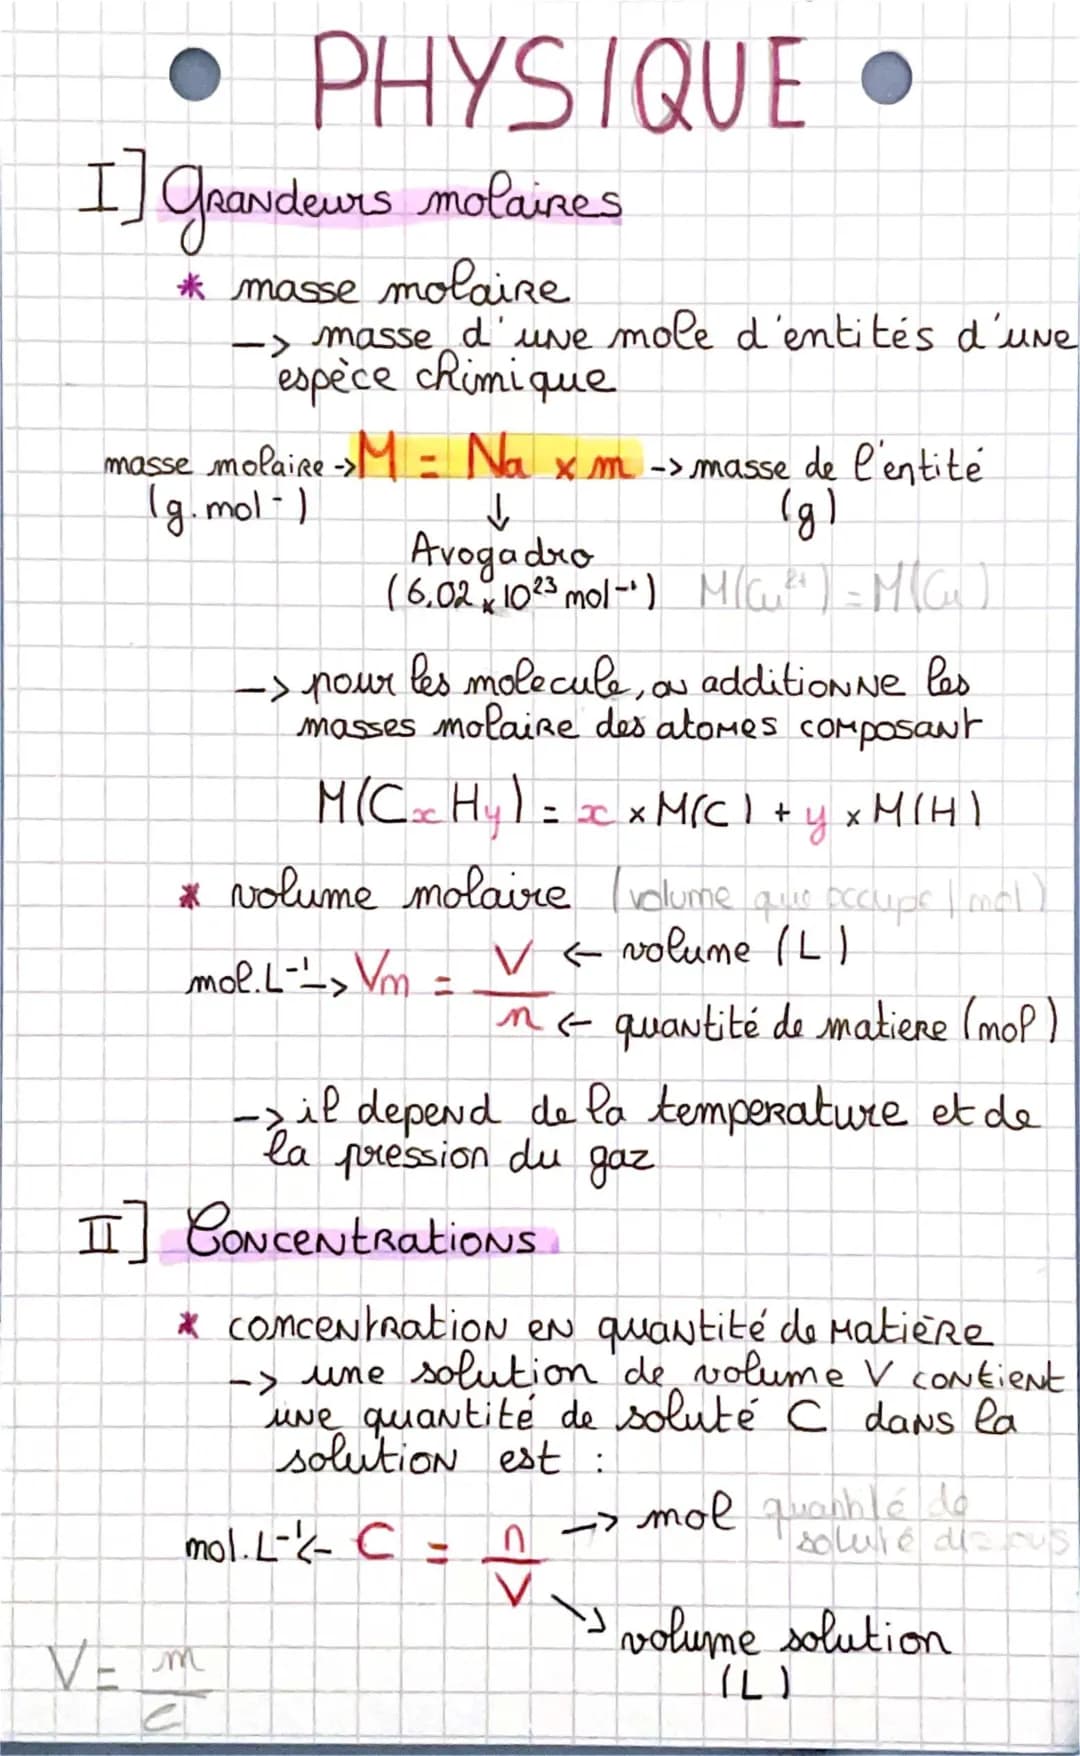 • PHYSIQUE •
I] Grandeurs molaires
* masse molaire
-> masse d'une mole d'entités d'une
espèce chimique
masse molaire -> M = Na x m -> masse de l'entité
(g.mol-) ↓ (g)
Avogadro
(6,02 x 10²³ mol-¹) M(Cu²⁺) = M(Cu)
-> pour les molecule, on additionne les
masses molaire des atomes composant
M(CxHy) = x x M(C) + y x M(H)
* volume molaire (volume que occupe 1 mol)
mol.L-¹-> Vm = V ← volume (L)
n ← quantité de matiere (mol)
-> il depend de la temperature et de
la pression du gaz
II] Concentrations
* concentration en quantité de matière
-> une solution de volume V contient
une quantité de soluté C dans la
solution est :
mol.L-¹<- C = n/V -> mol quantité de
soluté dissous
volume solution
(L)
V = m
c